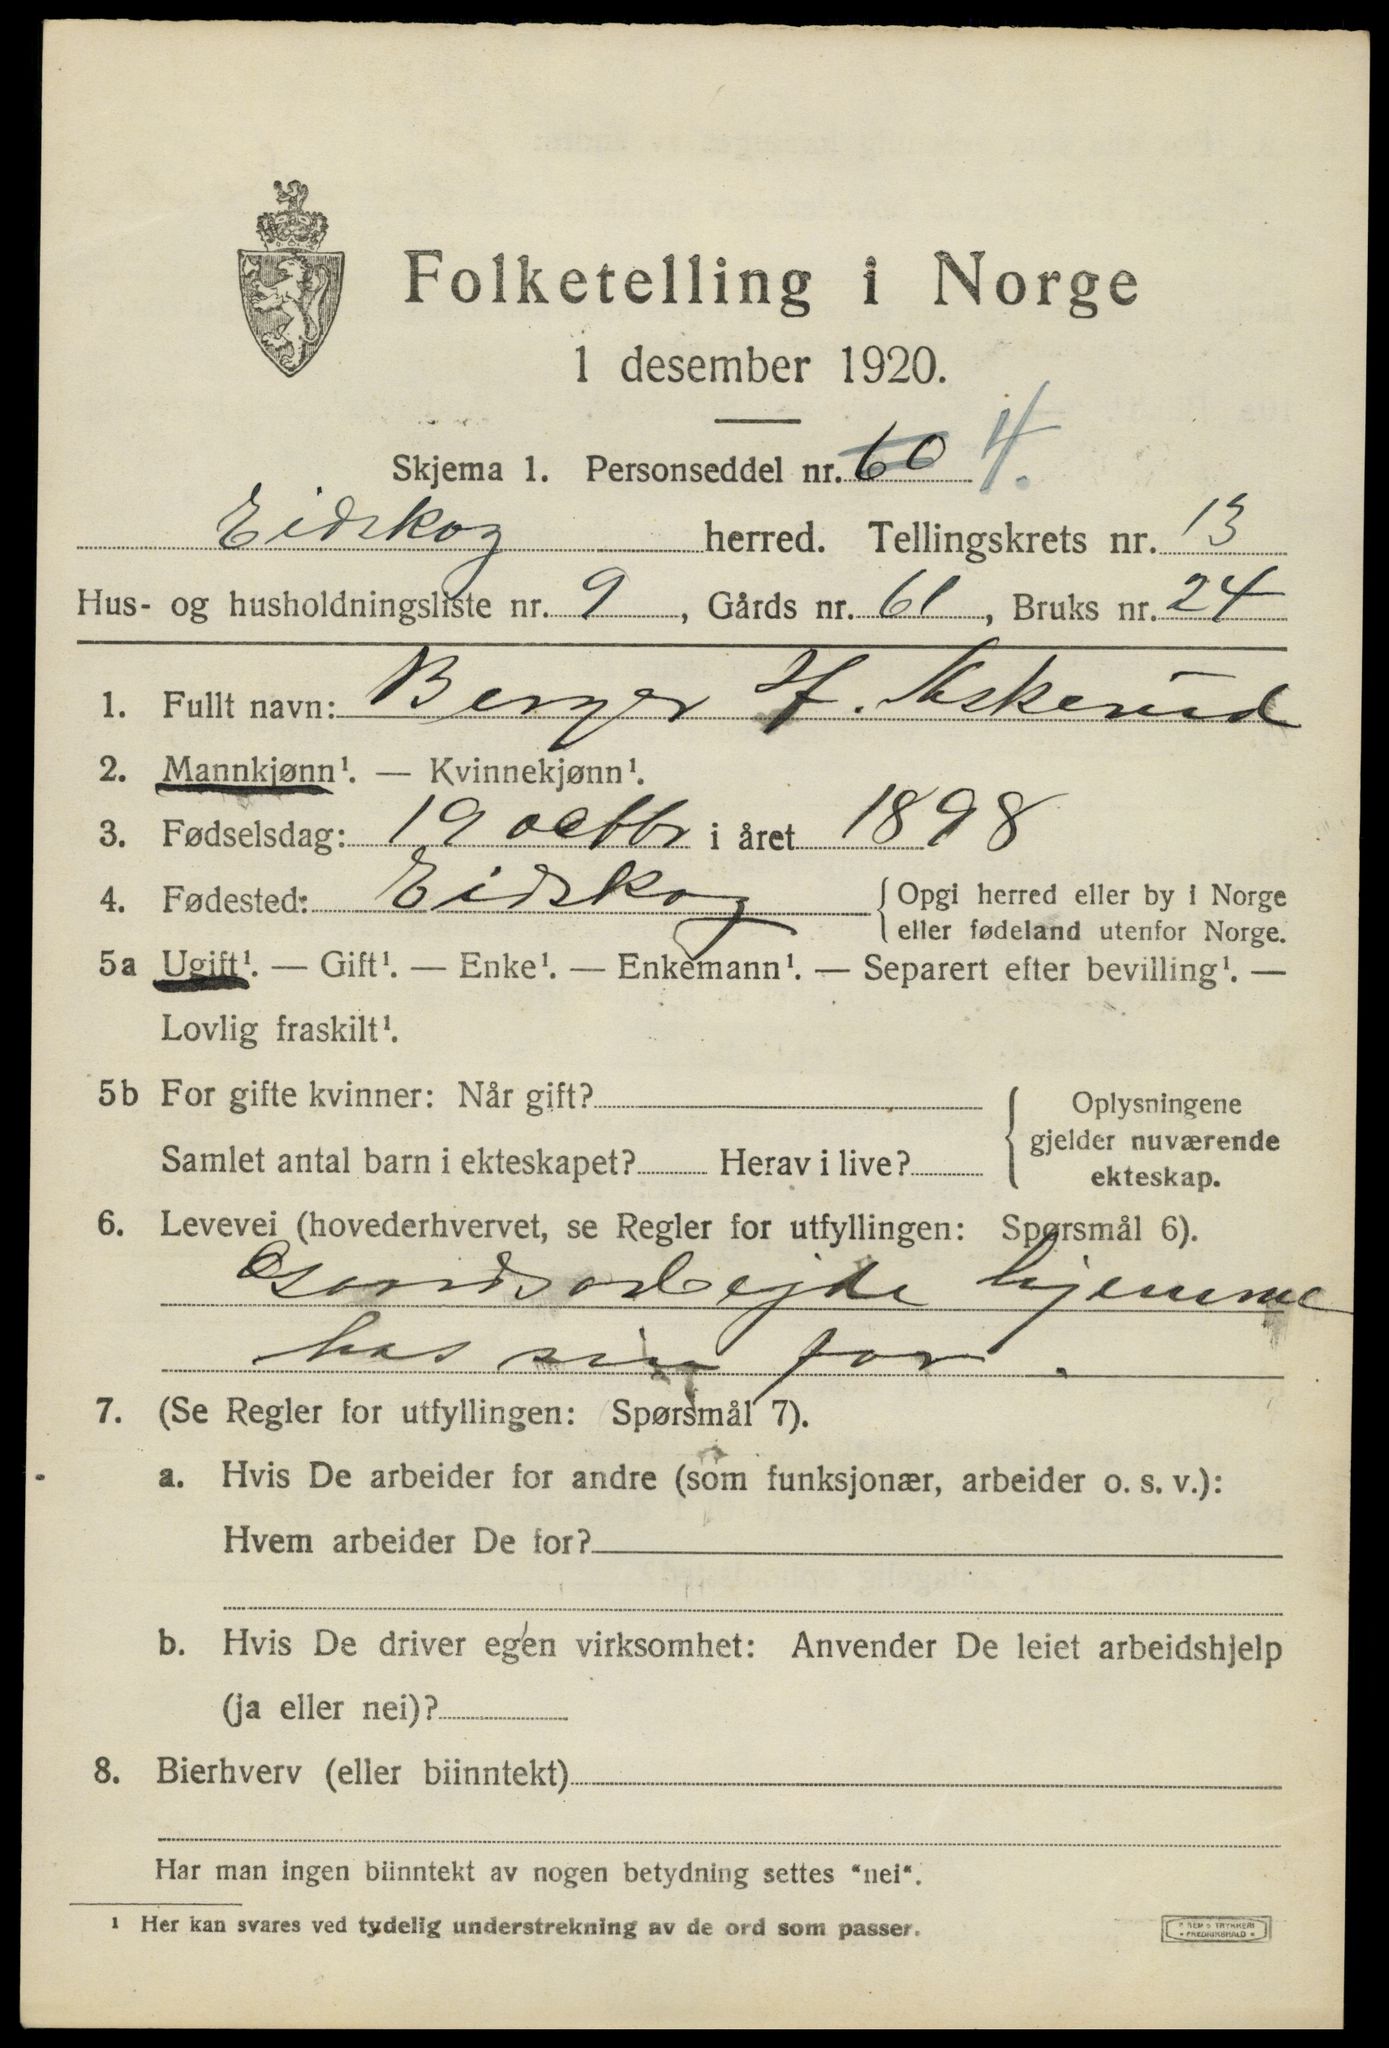 Folketelling i Norge
1 desember 1920.
Skjema 1. Personseddel nr. 60 4.
Eidskog herred. Tellingskrets nr. 13
Hus- og husholdningsliste nr. 9, Gårds nr. 61, Bruks nr. 24
1. Fullt navn: Berger H. Askerud
2. Mannkjønn¹. — Kvinnekjønn¹.
3. Fødselsdag: 19 octbr i året 1898
4. Fødested: Eidskog { Opgi herred eller by i Norge
eller fødeland utenfor Norge.
5a Ugift¹. — Gift¹. — Enke¹. — Enkemann¹. — Separert efter bevilling¹. —
Lovlig fraskilt¹.
5b For gifte kvinner: Når gift?
Samlet antal barn i ekteskapet? Herav i live?
{ Oplysningene
gjelder nuværende
ekteskap.
6. Levevei (hovederhvervet, se Regler for utfyllingen: Spørsmål 6).
Gaardsarbejde hjemme
hos sin far.
7. (Se Regler for utfyllingen: Spørsmål 7).
a. Hvis De arbeider for andre (som funksjonær, arbeider o. s. v.):
Hvem arbeider De for?
b. Hvis De driver egen virksomhet: Anvender De leiet arbeidshjelp
(ja eller nei)?
8. Bierhverv (eller biinntekt)
Har man ingen biinntekt av nogen betydning settes "nei".
¹ Her kan svares ved tydelig understrekning av de ord som passer.
TRYKKERI
FREDRIKSHALD